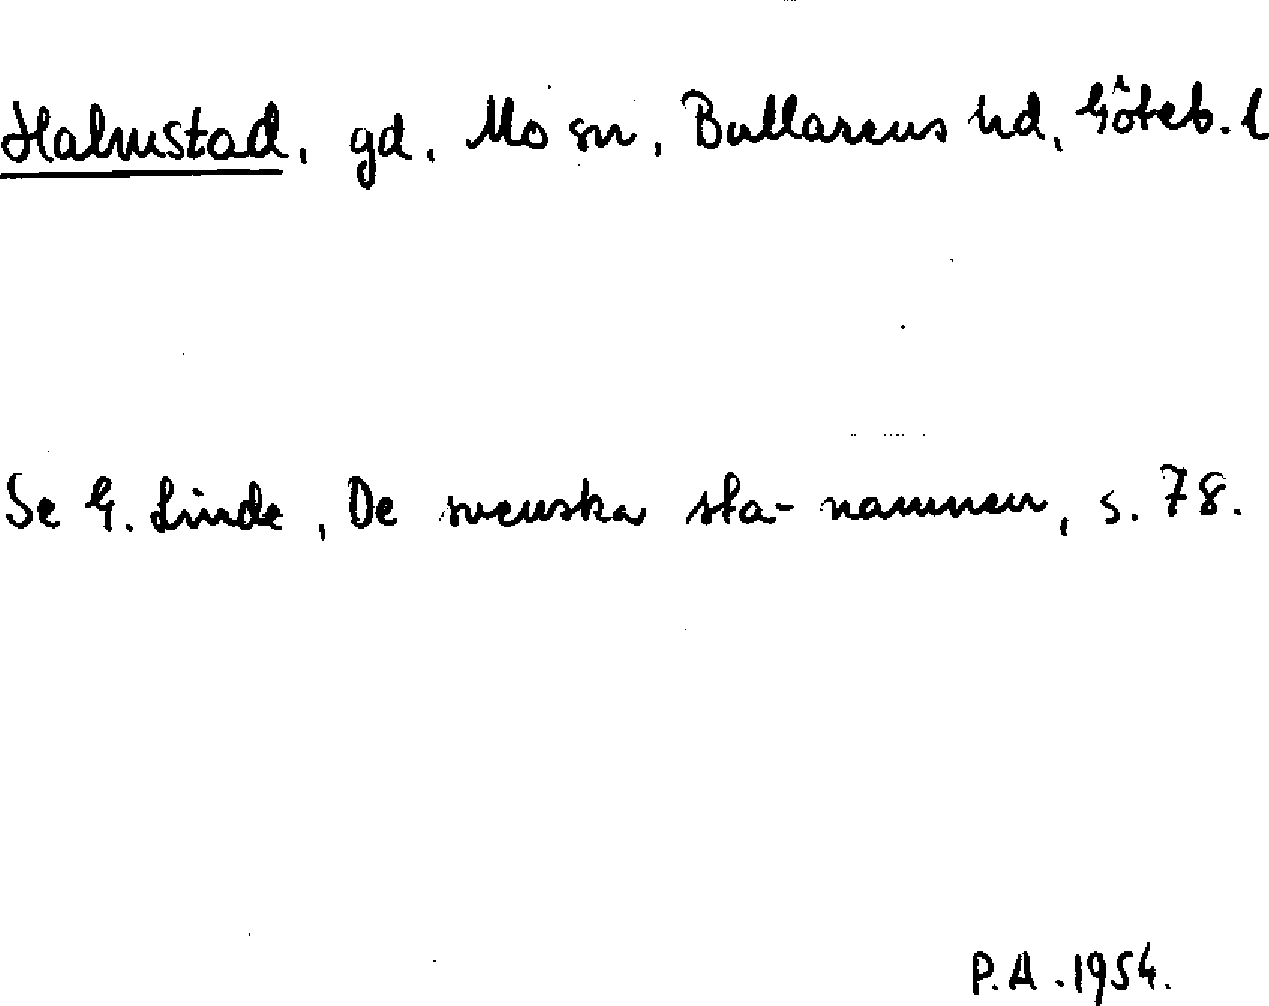 Halmstad, gd, Mo sn, Bullarens hd, Göteb. l
Se G. Linde, De svenska sta-namnen, s. 78.
P.A. 1954.